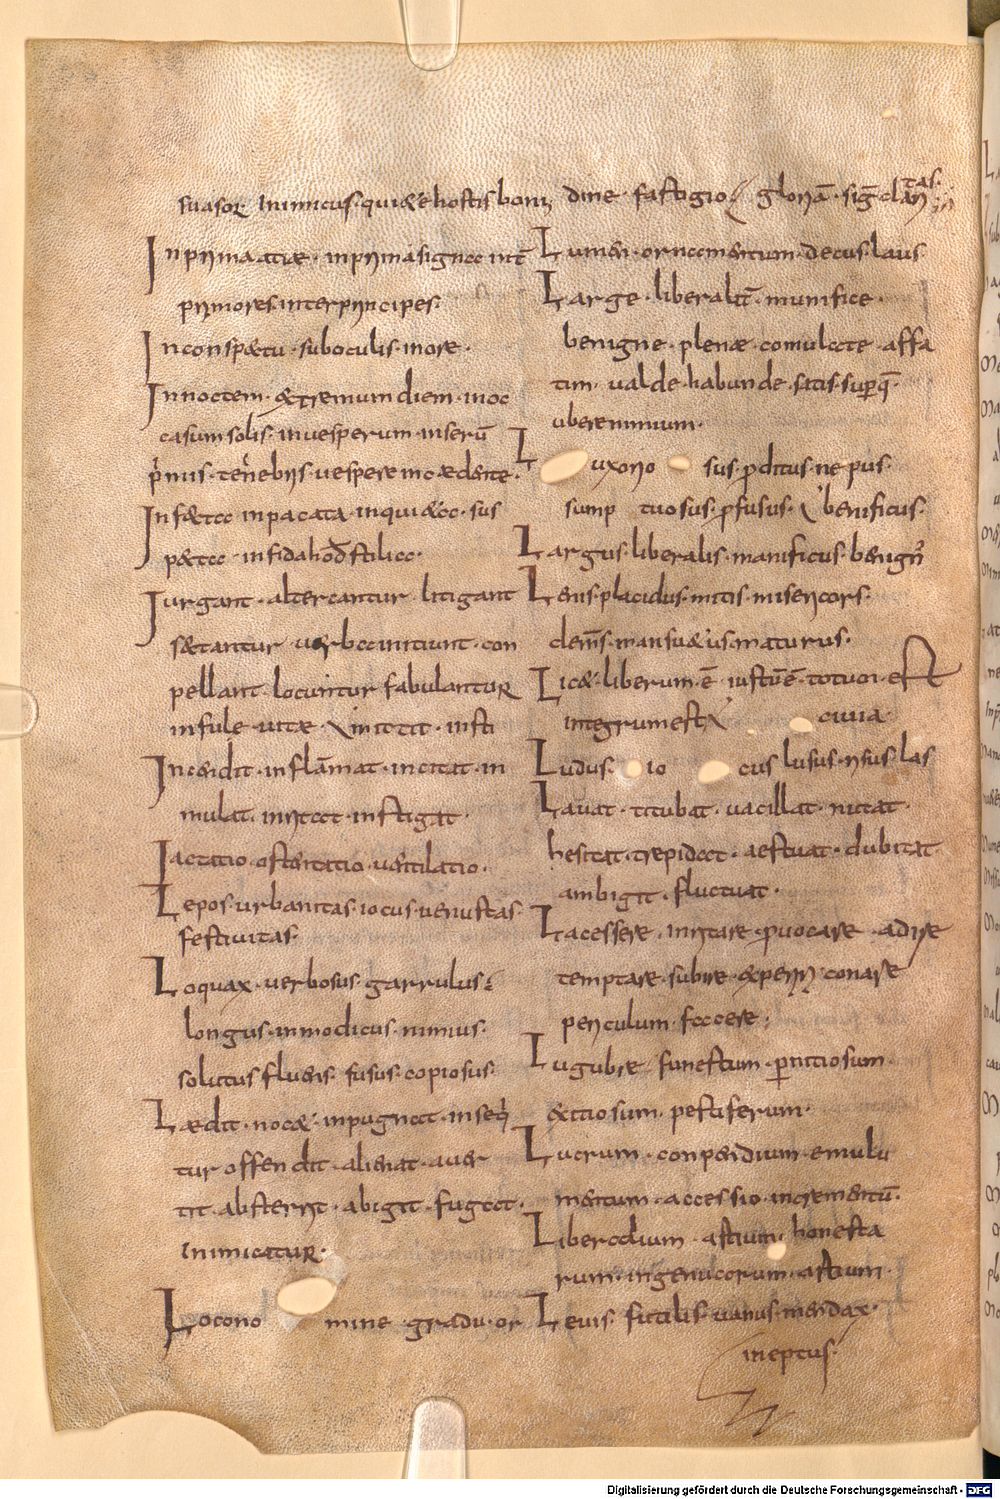 suasor. inimicus. qui & ehostis boni
In prima acie. in prima signa int̄
primores. inter principes.
In conspectu. sub oculis. in ore.
In noctem. extremum diem. in oc
casum solis. in uesperum. in serū
primis. tenebris. uespere incedente.
Infesta inpacata. inquieta. sus
pecta. infida hostilia.
Iurgant. altercantur. litigant
sectantur. uerba initiunt. con
pellant. locuntur fabulantur
insti
Incendit. inflāmat. incitat. in
mulat. inritat. instigat.
Iactatio. ostentatio. uentilatio.
Lepos. urbanitas. iocus. uenustas
festiuitas.
Loquax. uerbosus. garrulus.
longus. inmodicus. nimius.
solutus fluens. fusus. copiosus.
Lædit. nocet. inpugnat. inseq
tur offendit. alienat. auer
tit. absterrit. abigit. fugat.
inimicatur.
Loco no mine gradu. or
dine. fastigio. gloriā. sig̅. clari
tas.
Lumen. ornamentum. decus. laus.
Large. liberalit̄. munifice.
benigne. plenæ. comulate. affa
tim. ualde. habunde. satis. superq̄.
ubere nimium.
L uxorio sus. proditus. ne pus.
sump tuosus. profusus. benificus.
Largus. liberalis. manificus. benign
Lenis. placidus. mitis. misericors.
clemens. mansuetus. maturus.
Licet. liberum. ē. iustū ē. totum. est
integrum est ciuia.
Ludus. io cus lusus. risus. las
Lauat. titubat. uacillat. nutat.
hesitat. trepidat. aestuat. dubitat
ambigit. fluctuat.
Lacessere. inritare. prouocare. adire
temptare. subire. experiri. conare
periculum. facere.
Lugubre funestum. pernitiosum.
exitiosum. pestiferum.
Lucrum. conpendium. emulu
mentum. accessio. incrementū.
Liberalium. artium. honesta
rum. ingenuarum. artium.
Leuis. futilis. uanus. mendax.
ineptus.
Digitalisierung gefördert durch die Deutsche Forschungsgemeinschaft - DFG